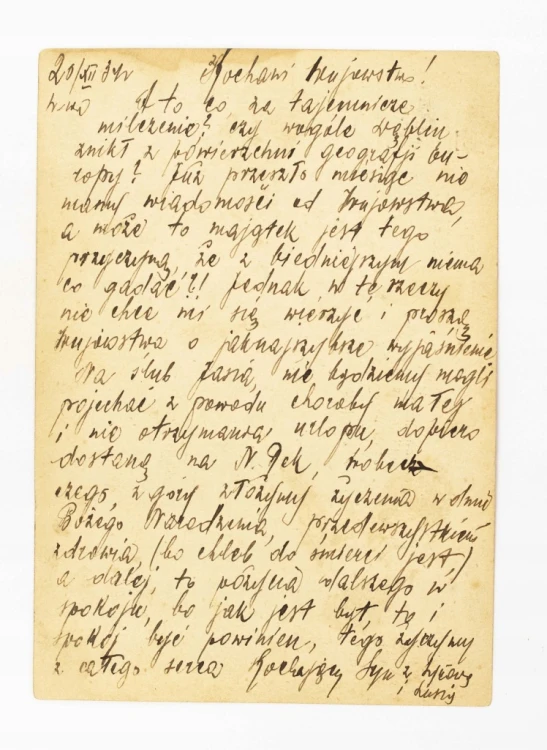 20/XII 34r Kochani Wujowstwo!
A to co za tajemnicze
milczenie? czy wogóle Wąblin
znikł z powierzchni geografji Eu-
ropy? Już przeszło miesiąc nie
mamy wiadomości od Wujowstwa,
a może to majątek jest tego
przyczyną, że z biedniejszym niema
co gadać?! Jednak w tę rzeczy
nie chce mi się wierzyć i proszę
Wujowstwa o jaknajszybsze wyjaśnienie
Na ślub Jasia, nie będziemy mogli
pojechać z powodu choroby małej
i nie otrzymania urlopu, dopiero
dostanę na N. Rok, wobec
czego z góry złożymy życzenia w dniu
Bożego Narodzenia, przedewszystkiem
zdrowia, (bo chleb do śmierci jest,)
a dalej, to pożycia dalszego w
spokoju, bo jak jest byt, to i
spokój być powinien, tego życzymy
z całego serca Kochający Syn z żoną
i Lusią